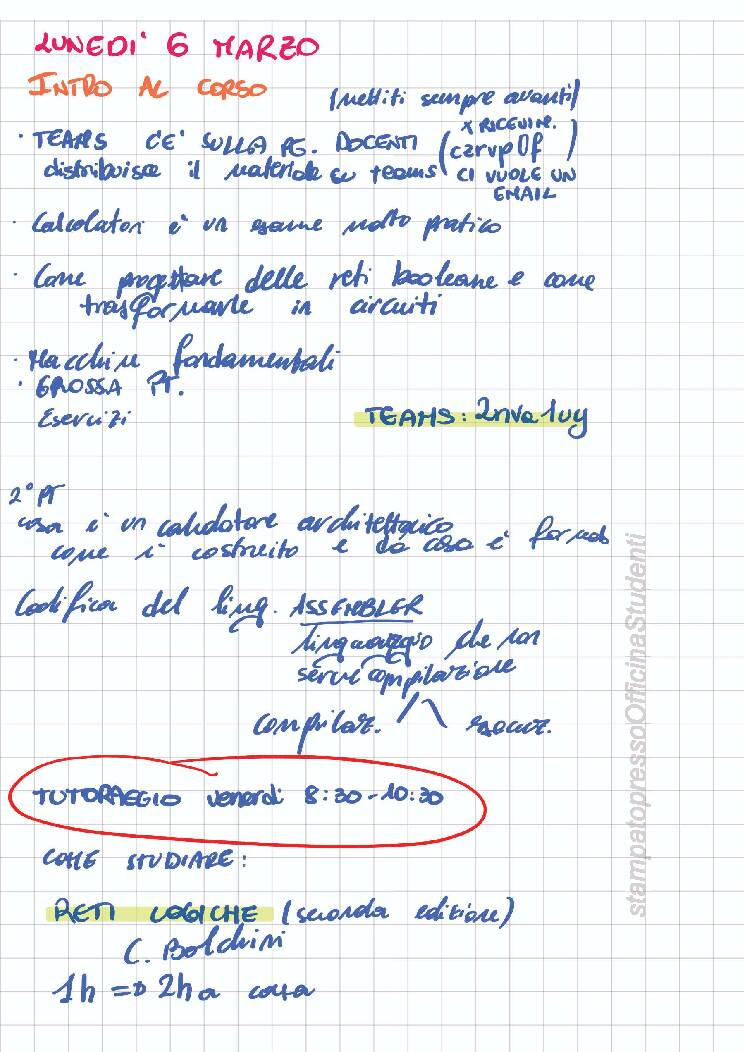 LUNEDI' 6 MARZO
INTRO AL CORSO
(mettiti sempre avanti)
· TEAMS C'E' SULLA PG. DOCENTI
distribuisce il materiale su teams
(x RICEVIM.
czrvp0f)
CI VUOLE UN
EMAIL
· Calcolatori è un esame molto pratico
· Come progettare delle reti booleane e come
trasformarle in circuiti
· Macchine fondamentali
· GROSSA PT.
Esercizi
TEAMS: 2nva1uy
2° PT
cosa è un calcolatore architettonico
come è costruito e da cosa è formato
Codifica del ling. ASSEMBLER
linguaggio che non
serve compilazione
compilaz. esecuz.
TUTORAGGIO venerdì 8:30-10:30
COME STUDIARE:
RETI LOGICHE (seconda edizione)
C. Bolchini
1h => 2h a casa
stampatopressoOfficinaStudenti